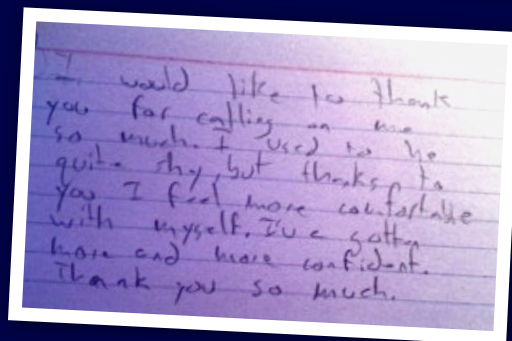 I would like to thank
you for calling on me
so much. I used to be
quite shy, but thanks to
you I feel more comfortable
with myself. I've gotten
more and more confident.
Thank you so much.